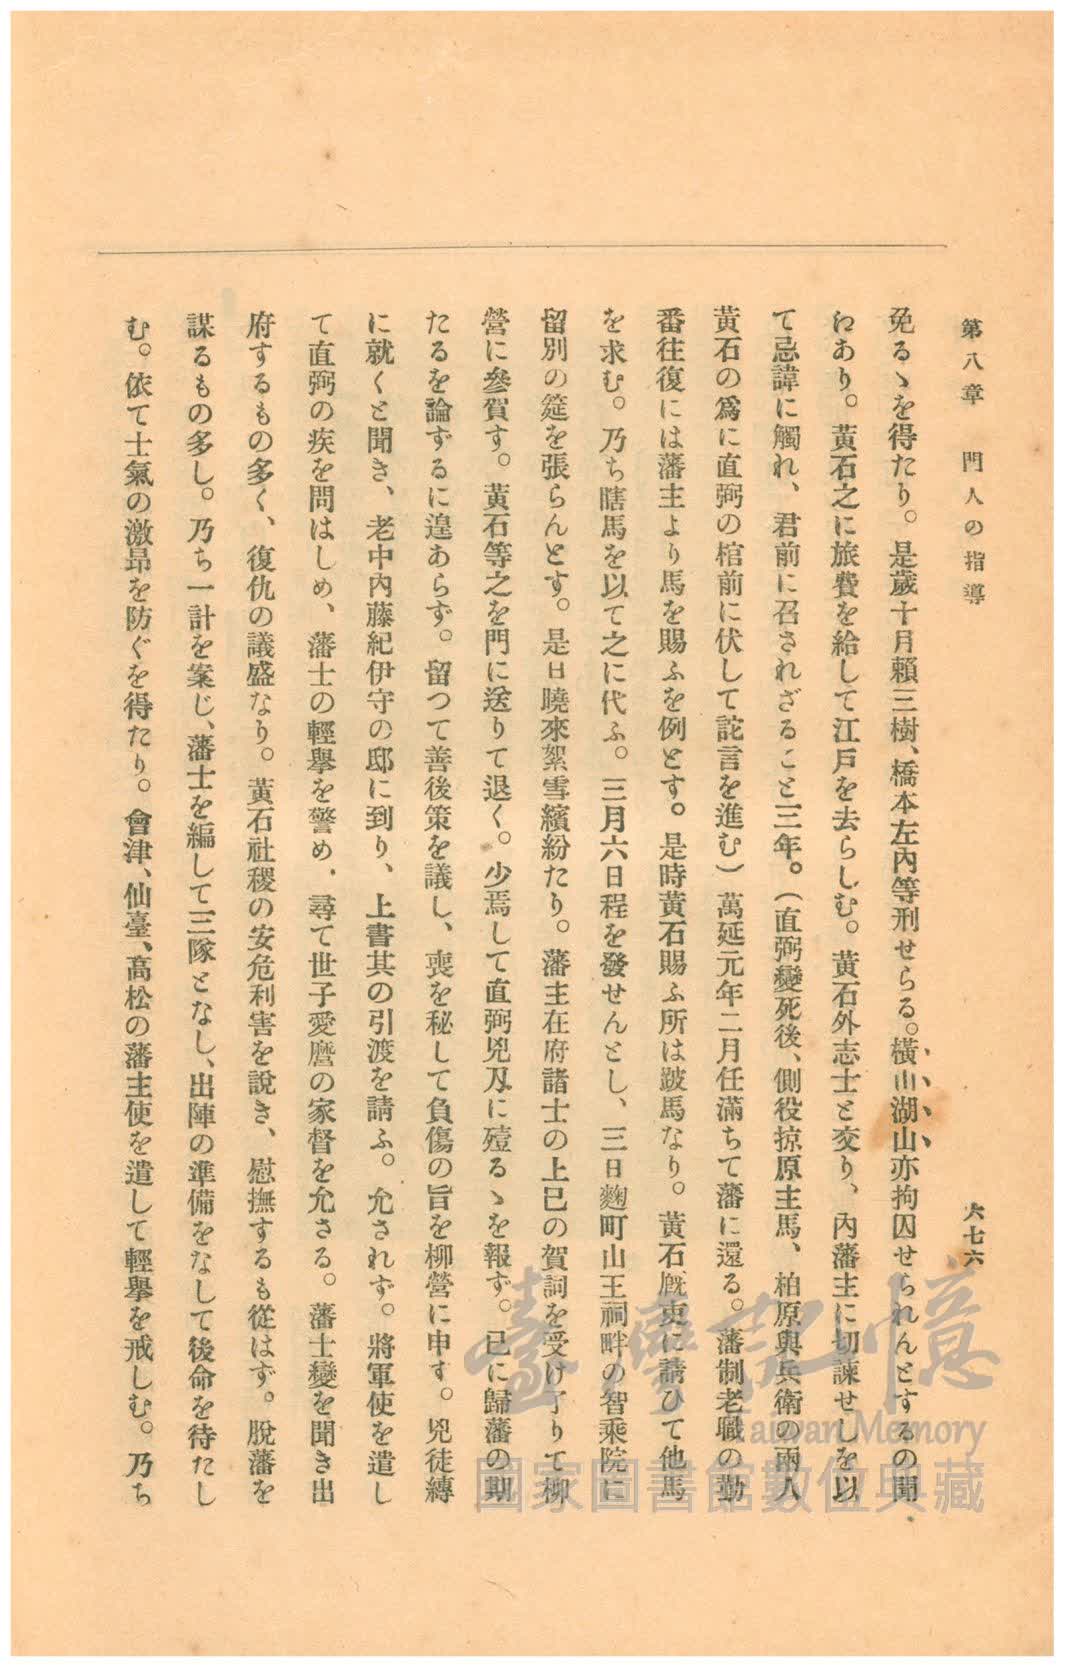 第八章 門人の指導
六七六
免るゝを得たり。是歲十月賴三樹、橋本左內等刑せらる。橫山湖山亦拘囚せられんとするの聞
にあり。黃石之に旅費を給して江戶を去らしむ。黃石外志士と交り、內藩主に切諫せしを以
て忌諱に觸れ、君前に召されざること三年。（直弼變死後、側役掠原主馬、柏原與兵衛の兩人
黃石の爲に直弼の棺前に伏して詫言を進む）萬延元年二月任滿ちて藩に還る。藩制老職の勤
番往復には藩主より馬を賜ふを例とす。是時黃石賜ふ所は跛馬なり。黃石厩吏に請ひて他馬
を求む。乃ち瞎馬を以て之に代ふ。三月六日程を發せんとし、三日麴町山王祠畔の智乘院に
留別の筵を張らんとす。是日曉來絮雪繽紛たり。藩主在府諸士の上巳の賀詞を受け了りて柳
營に參賀す。黃石等之を門に送りて退く。少焉して直弼兇刄に殪るゝを報ず。已に歸藩の期
たるを論ずるに遑あらず。留つて善後策を議し、喪を秘して負傷の旨を柳營に申す。兇徒縛
に就くと聞き、老中內藤紀伊守の邸に到り、上書其の引渡を請ふ。允されず。將軍使を遣し
て直弼の疾を問はしめ、藩士の輕擧を警め、尋て世子愛麿の家督を允さる。藩士變を聞き出
府するもの多く、復仇の議盛なり。黃石社稷の安危利害を說き、慰撫するも從はず。脫藩を
謀るもの多し。乃ち一計を案じ、藩士を編して三隊となし、出陣の準備をなして後命を待たし
む。依て士氣の激昂を防ぐを得たり。會津、仙臺、高松の藩主使を遣して輕擧を戒しむ。乃ち
臺灣記憶
Taiwan Memory
國家圖書館數位典藏